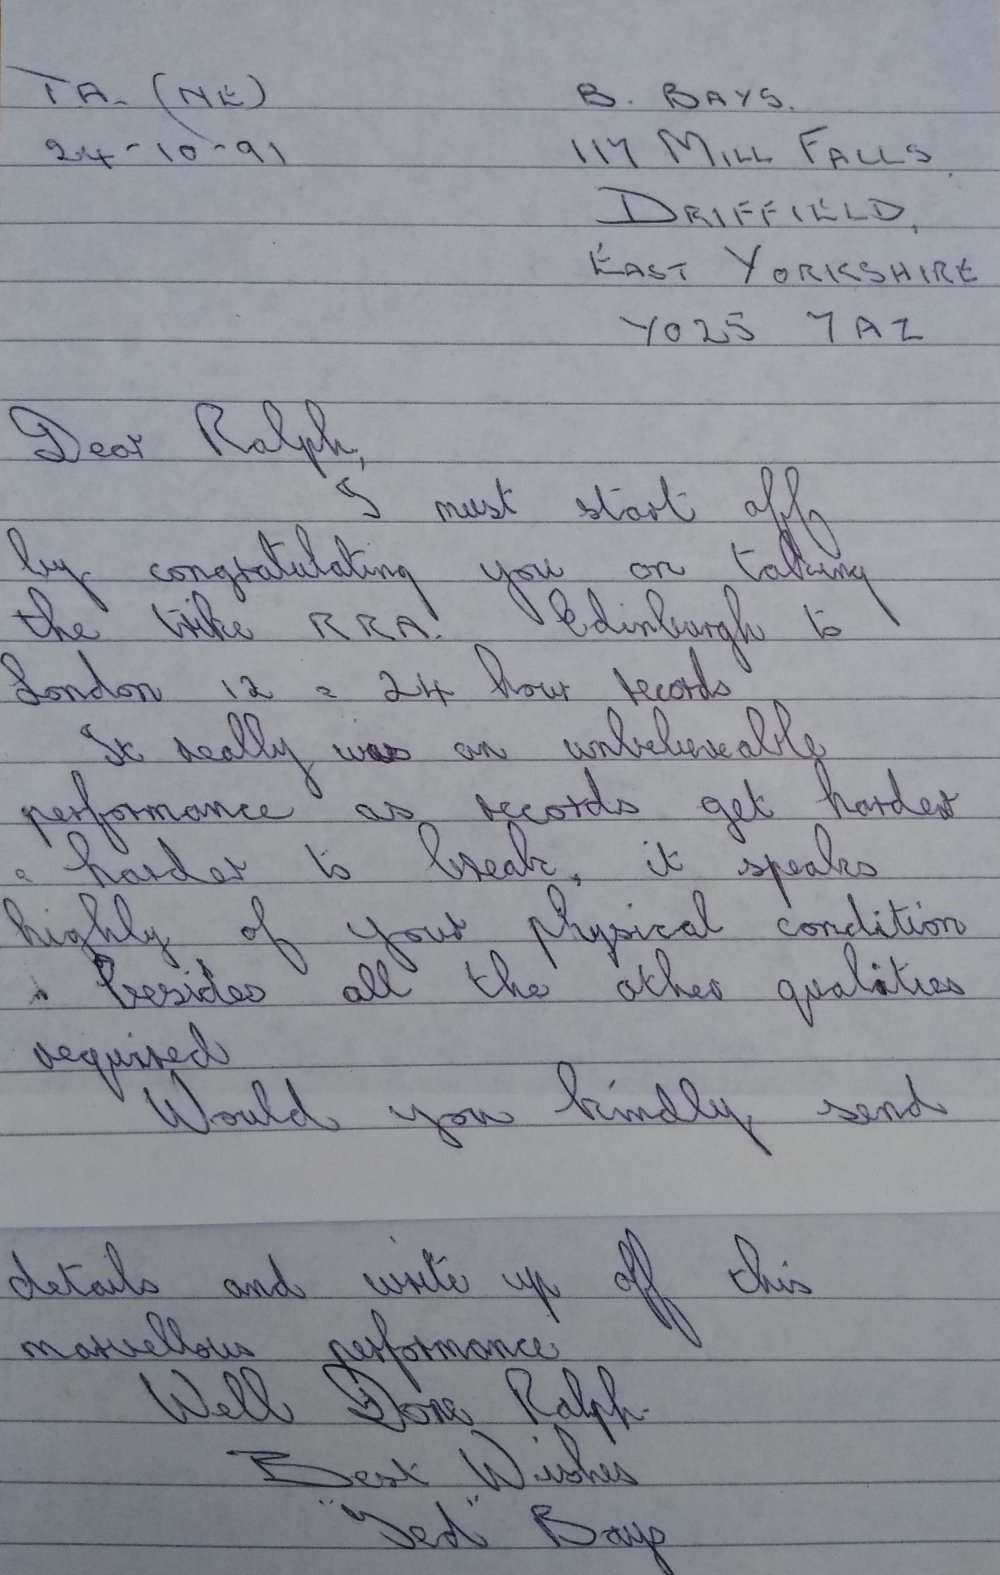 TA. (NE)
24-10-91
B. BAYS.
117 MILL FALLS
DRIFFIELD,
EAST YORKSHIRE
YO25 7AZ
Dear Ralph,
I must start off
by congratulating you on taking
the trike RRA. Edinburgh to
London 12 & 24 hour records
It really was an unbelieveable
performance as records get harder
& harder to break, it speaks
highly of your physical condition
besides all the other qualities
required
Would you kindly send
details and write up off this
marvellous performance
Well Done Ralph.
Best Wishes
"Jed" Bays